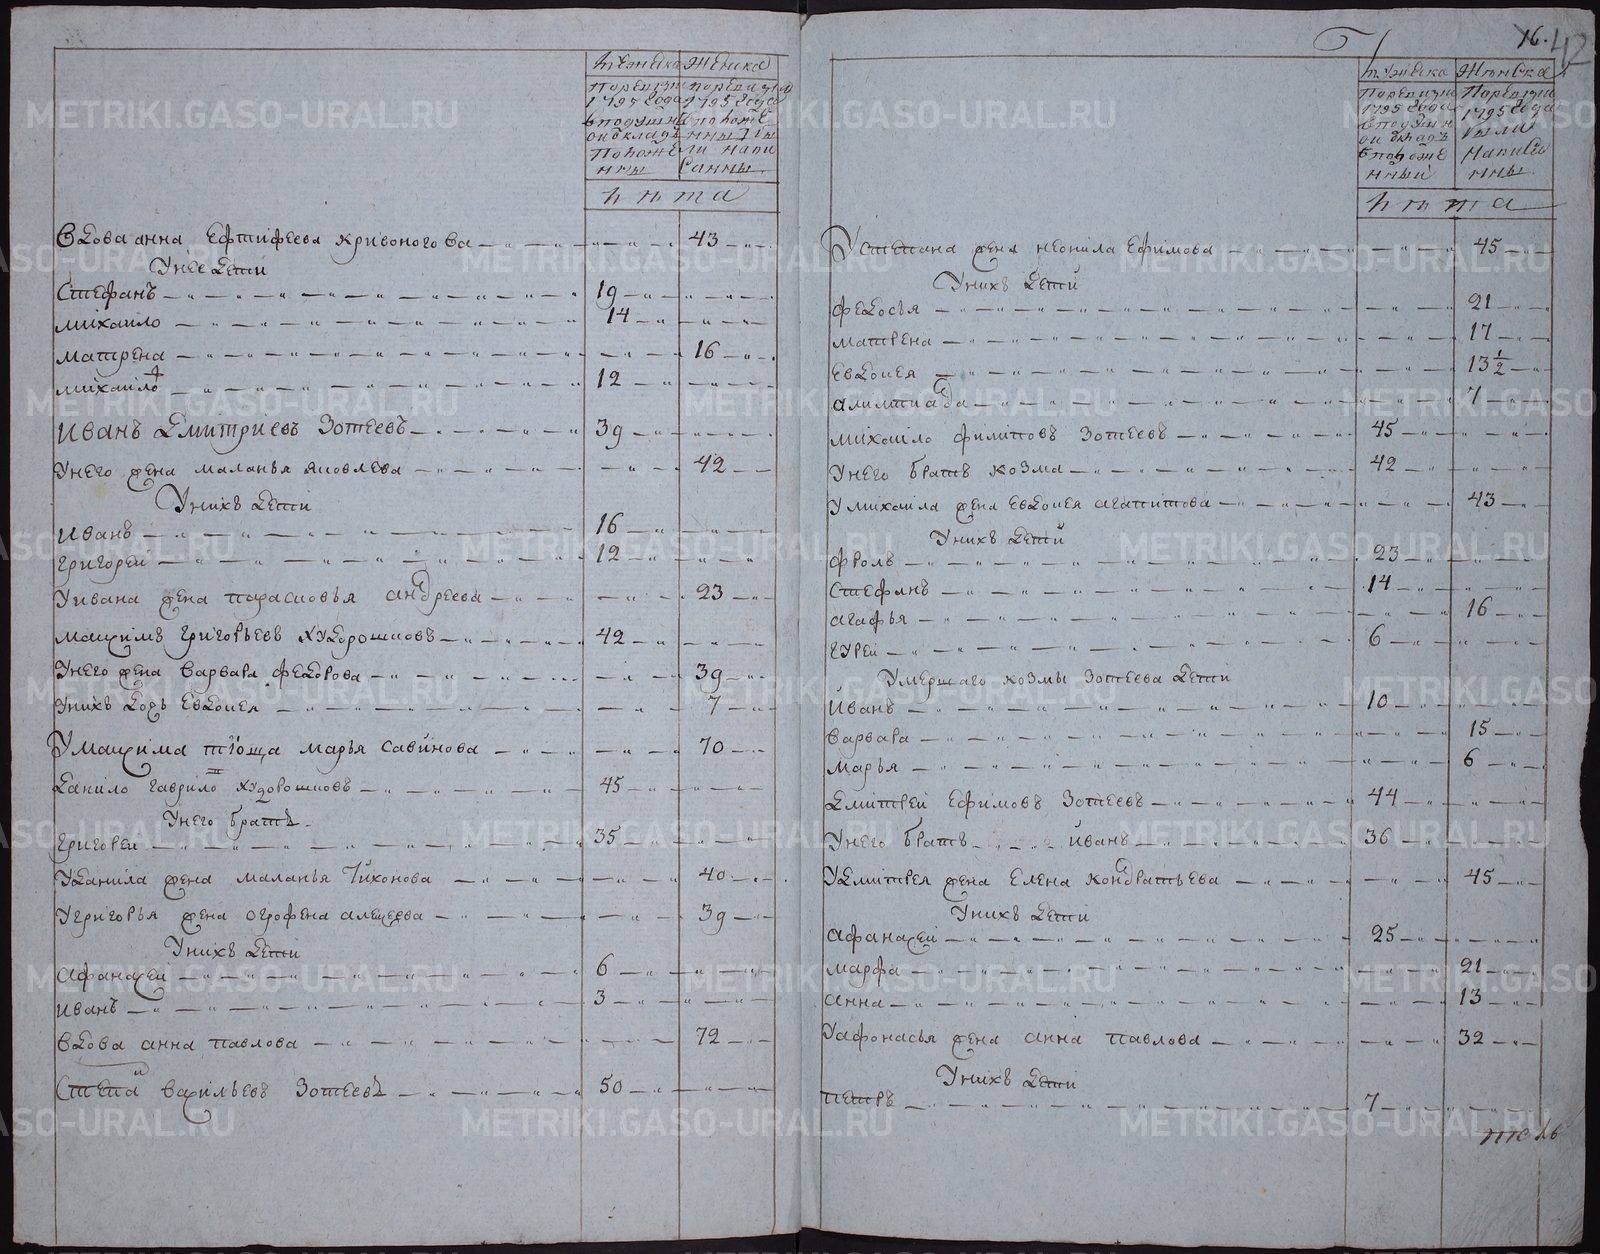 мужеска женска
поревизи поревизи
1795 года 1795 года
вподушн
ои окладъ
написанны
лѣта
Вдова анна Ефтифеева кривоногова 43
Унее дети
Стефанъ 19
михаило 14
матрена 16
михаило 12
иванъ дмитриевъ Зотеевъ 39
Унего жена маланья яковлева 42
Унихъ дети
иванъ 16
григореи 12
Уивана жена парасковья андреева 23
максимъ григорьевъ худорошковъ 42
Унего жена варвара федорова 39
Унихъ дочь Евдокея 7
Умаксима тioща марья савинова 70
данило гаврило худорошковъ 45
Унего братъ
григореи 35
Уданила жена маланья тихонова 40
Угригорья жена огрофена алексеева 39
Унихъ дети
афанасеи 6
иванъ 3
вдова анна павлова 72
Степан васильевъ Зотеевъ 50
16. 42
мужеска женска
поревизи поревизи
1795 года 1795 года
вподушн были
ои окладъ написа
нны
лѣта
Устепана жена неонила Ефимова 45
Унихъ дети
федосья 21
матрена 17
Евдокея 13 1/2
алимпиада 7
михаило филиповъ Зотеевъ 45
Унего братъ козма 42
Умихаила жена Евдокея агапитова 43
Унихъ дети
фролъ 23
стефанъ 14
агафья 16
гуреи 6
Умершаго козмы Зотеева дети
иванъ 10
варвара 15
марья 6
дмитреи Ефимовъ Зотеевъ 44
Унего братъ иванъ 36
Удмитрея жена Елена кондратьева 45
Унихъ дети
афанасеи 25
марфа 21
анна 13
Уафонасья жена анна павлова 32
Унихъ дети
петръ 7